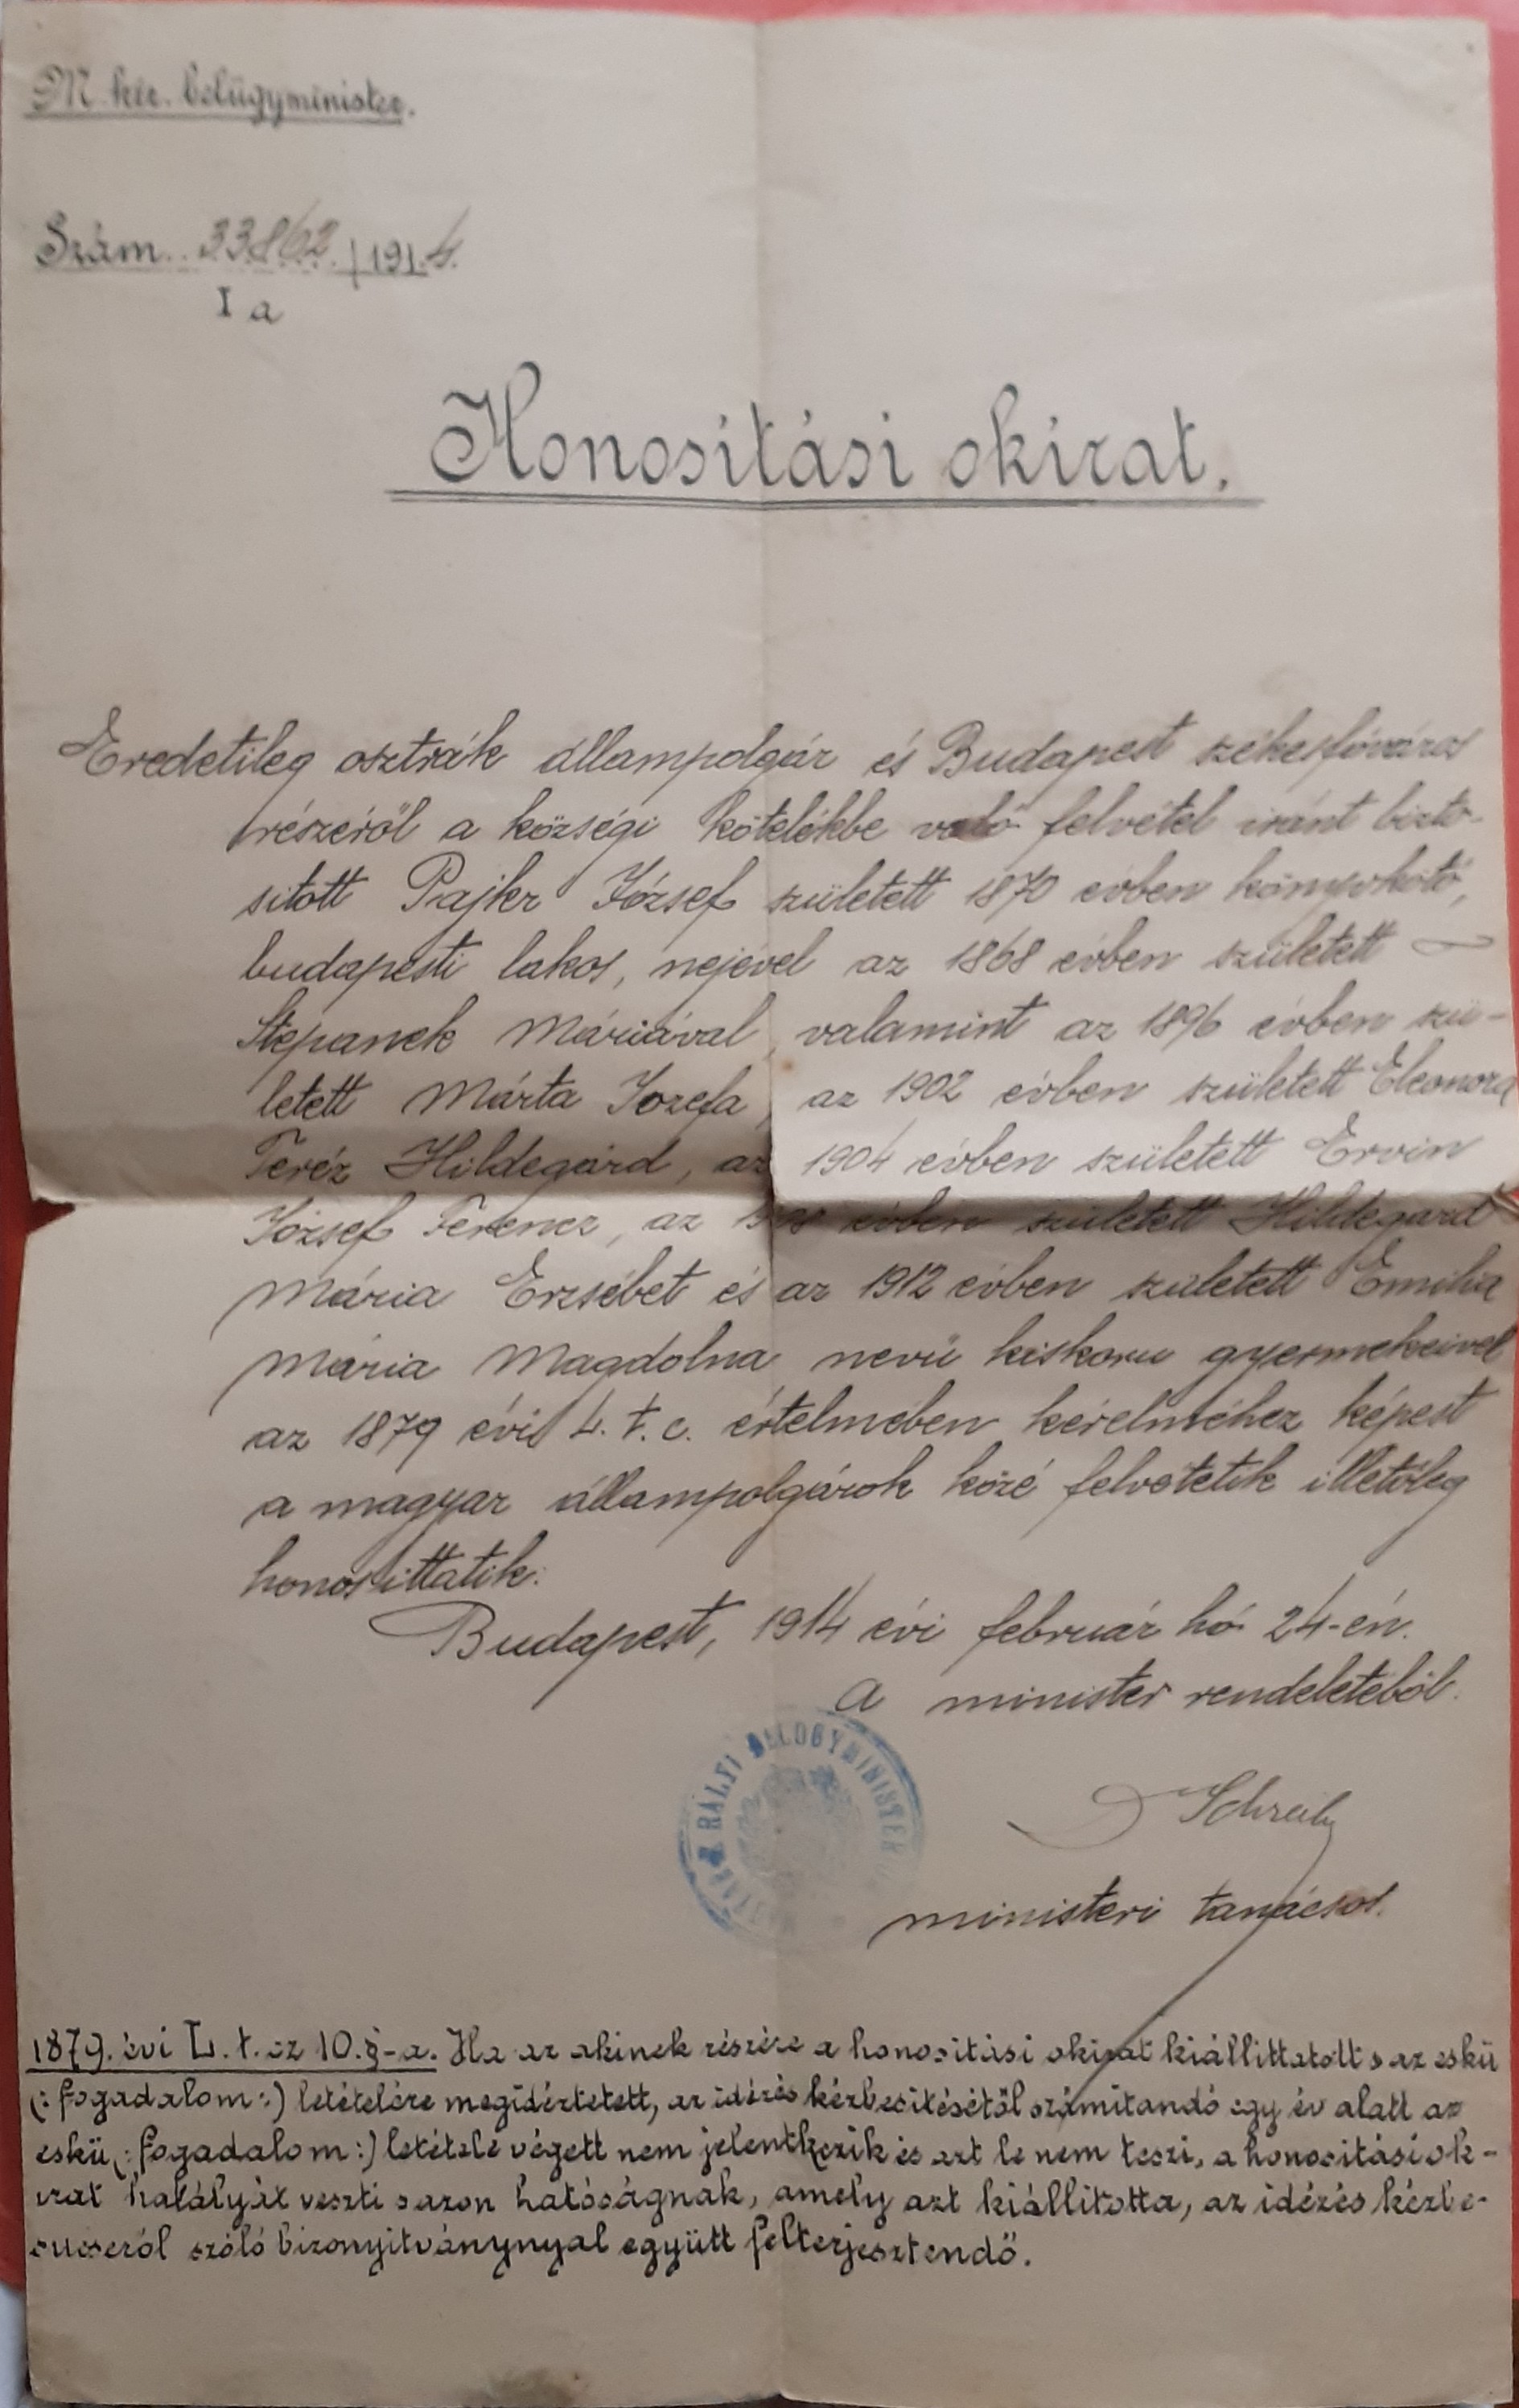 M. kir. belügyminister.
Szám. 33862. / 1914.
I a
Honosítási okirat.
Eredetileg osztrák állampolgár és Budapest székesfőváros
részéről a községi kötelékbe való felvétel iránt bizto-
sitott Pajker József született 1870 évben könyvkötő,
budapesti lakos, nejével az 1868 évben született
Stepanek Máriával, valamint az 1896 évben szü-
letett Márta Jozefa, az 1902 évben született Eleonora
Teréz Hildegárd, az 1904 évben született Ervin
József Ferencz, az évben született Hildegard
Mária Erzsébet és az 1912 évben született Emilia
Mária Magdolna nevü kiskoru gyermekeivel
az 1879 évi L. t. c. értelmében kérelméhez képest
a magyar állampolgárok közé felvétetik illetőleg
honosittatik.
Budapest, 1914 évi február hó 24-én.
A minister rendeletéből.
KIRÁLYI BELÜGYMINISTER
ministeri tanácsos.
1879. évi L. t. cz 10. §-a. Ha az akinek részére a honositási okirat kiállittatott s az eskü
(: fogadalom :) letételére megidéztetett, az idézés kézbesitésétől számitandó egy év alatt az
eskü (: fogadalom :) letétele végett nem jelentkezik és azt le nem teszi, a honositási ok-
irat hatályát veszti s azon hatóságnak, amely azt kiállitotta, az idézés kézbe-
sitéséről szóló bizonyitványnyal együtt felterjesztendő.